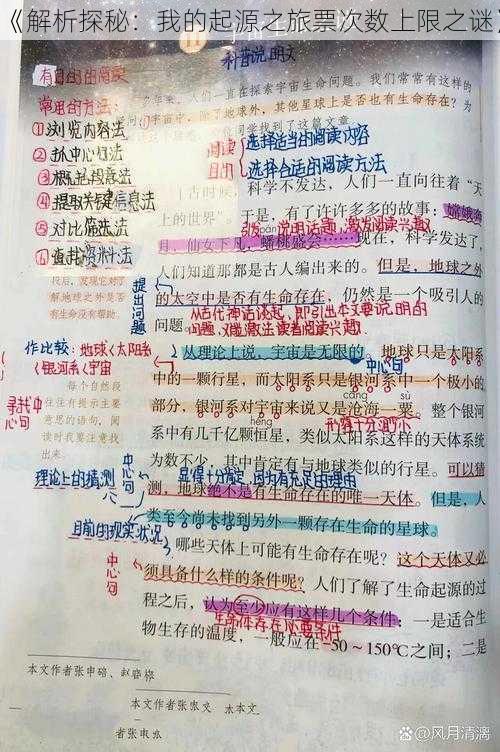 《解析探秘：我的起源之旅票次数上限之谜》
科普说明文
有目的的阅读
常用的方法：
①浏览内容法
②抓中心句法
③概括段意法
④提取关键信息法
⑤对比筛选法
⑥查找资料法
阅读
目的
选择适当的阅读内容
选择合适的阅读方法
人们一直在探索宇宙生命问题。我们常常有这样的
宇宙中，除了地球外，其他星球上是否也有生命存在？为
找到了这篇文章。
古时候，科学不发达，人们一直向往着“天
上的世界”。于是，有了许许多多的故事：嫦娥奔
月、仙女下凡、蟠桃盛会……现在，科学发达了，
人们知道那都是古人编出来的。但是，地球之外
的太空中是否有生命存在，仍然是一个吸引人的
问题。
提出问题
从古代神话谈起，即引出本文要说明的
问题，又能激发读者阅读兴趣。
我后，发现它对了
解地球之外是否
有生命没有帮助。
作比较：地球<太阳系
<银河系<宇宙
从理论上说，宇宙是无限的。地球只是太阳系
中心句
中的一颗行星，而太阳系只是银河系中一个极小的
部分，银河系对宇宙来说又是沧海一粟。整个银河
cāng
sù
héng
系中有几千亿颗恒星，类似太阳系这样的天体系统
为数不少，其中肯定有与地球类似的行星。可以猜
测，地球绝不是有生命存在的唯一天体。但是，人
类至今尚未找到另外一颗存在生命的星球。
每个自然段
往往有提示主要
意思的语句，阅
读时我要注意找
出来。
寻找中
心句
理论上的猜测
中心句
显得十分肯定，因为有充足的理由
目前的现实状况
哪些天体上可能有生命存在呢？这个天体又必
须具备什么样的条件呢？人们了解了生命起源的过
中心句
程之后，认为至少应有这样几个条件：一是适合生
生命体存在必要条件
物生存的温度，一般应在-50～150℃之间；二是
本文作者张
本文作者张
者张
@风月清漓